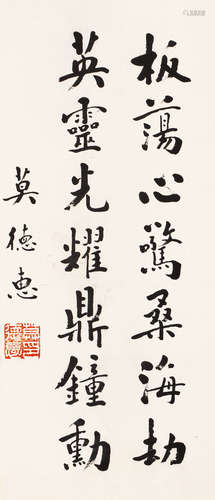 板蕩心驚桑海劫
英靈光耀鼎鐘勳
莫德惠
莫德惠印